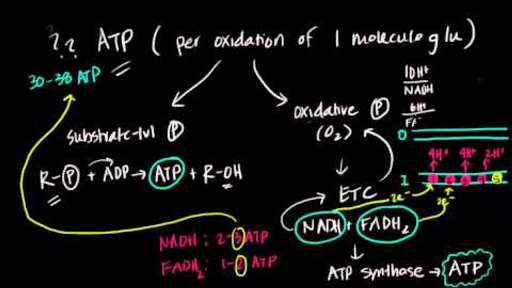 ?? ATP ( per oxidation of 1 molecule glu )
30-38 ATP
substrate-lvl P
R-P + ADP → ATP + R-OH
NADH : 2-3 ATP
FADH2 : 1-2 ATP
Oxidative P
(O2)
↓
ETC
NADH + FADH2
↓
ATP synthase → ATP
10H+
NADH
6H+
FA
O
4H+ 4H+ 2H+
I
2e- 2e-